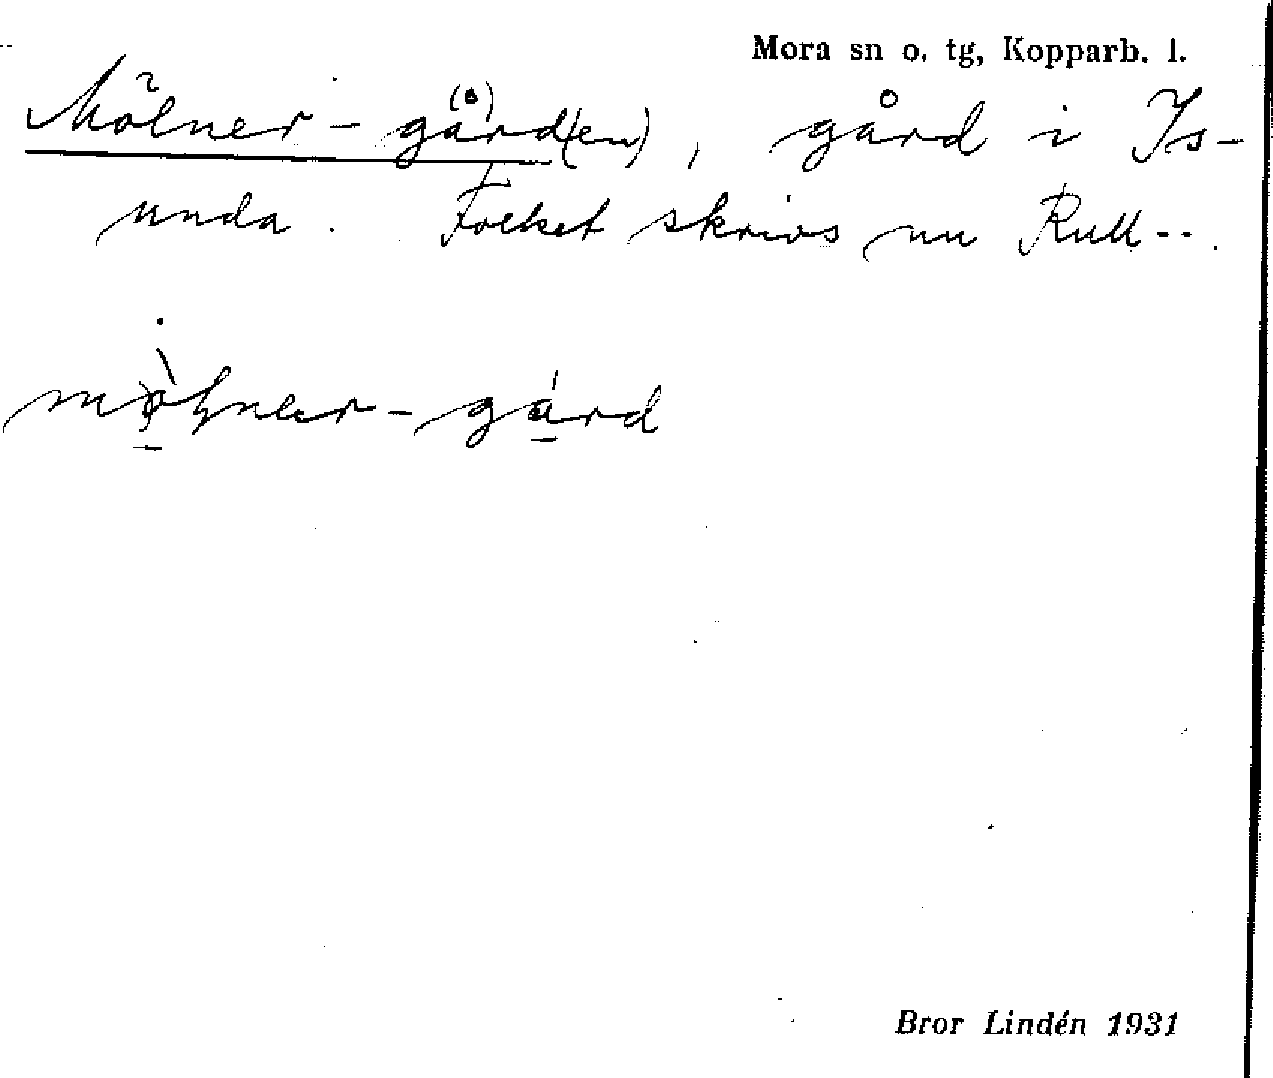 Mora sn o. tg, Kopparb. l.
Mölner-gård(en), gård i Is-
unda. Folket skrivs nu Rull--.
mölner-gård
Bror Lindén 1931